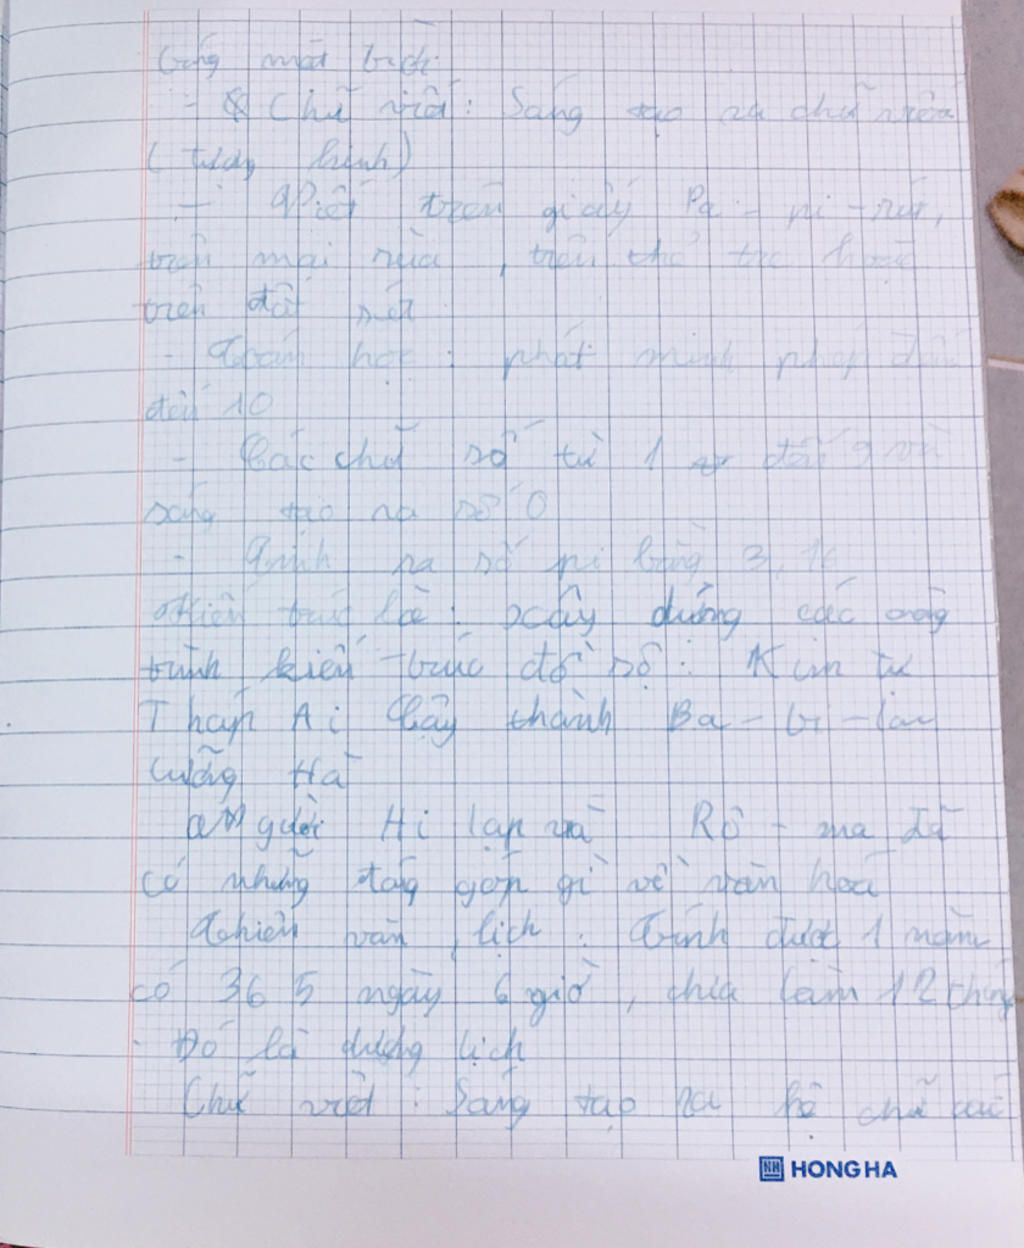 bóng mặt trời
- Chữ viết: Sáng tạo ra chữ viết
( tượng hình )
- Viết trên giấy Pa - pi - rút,
trên mai rùa , trên thẻ tre hoặc
trên đất sét
- Toán học : phát minh phép đếm
đến 10
- Các chữ số từ 1 đến 9 và
sáng tạo ra số 0
- Tính ra số pi bằng 3,16
Kiến trúc là : xây dưng các công
trình kiến trúc đồ sộ : Kim tự
Tháp Ai Cập thành Ba - bi - lon
Lưỡng Hà
Người Hi lạp và Rô - ma đã
có những đóng góp gì về văn hoá
Thiên văn , lịch : Tính được 1 năm
có 365 ngày 6 giờ , chia làm 12 tháng
- Đó là dương lịch
Chữ viết : Sáng tạo ra hệ chữ cái
HONG HA